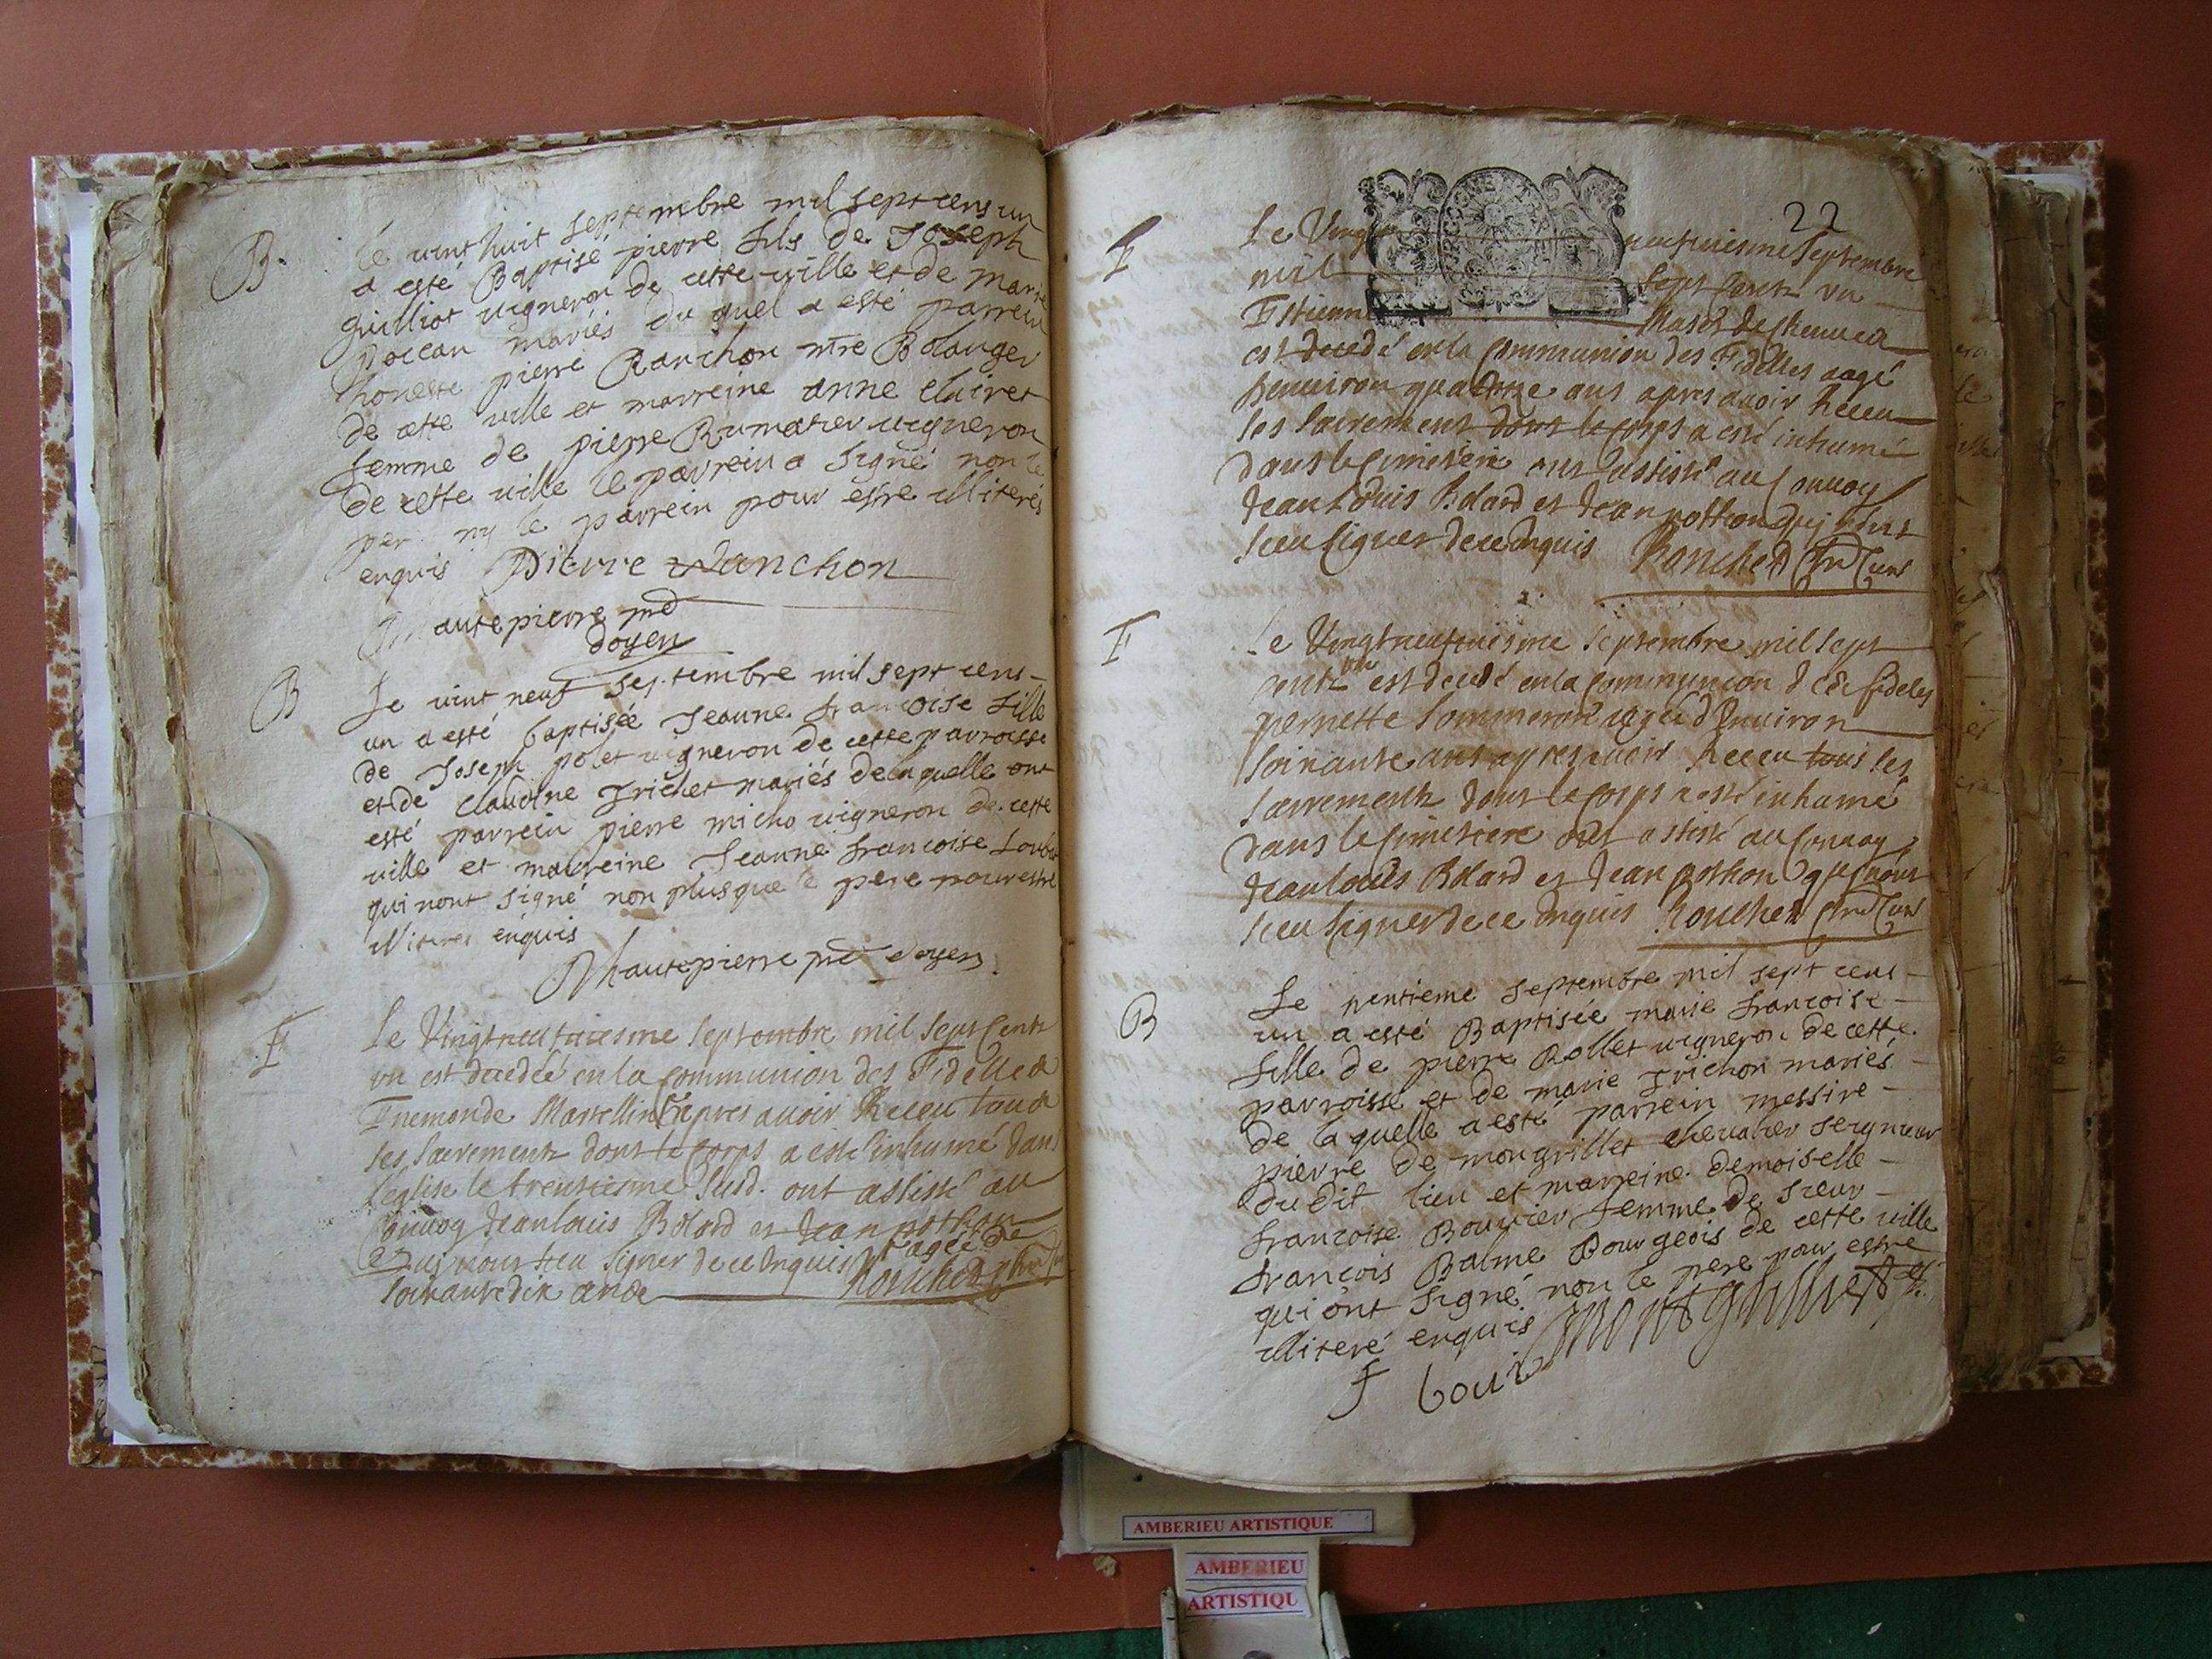 B.
le vint huit septembre mil sept cens un
a esté Baptisé pierre fils de Joseph
Guilliot vigneron de cette ville et de marie
poccan mariés du quel a esté parrein
honeste pierre Ranchon mre Bolanger
de cette ville et marreine anne clairet
femme de pierre Rumatier vigneron
de cette ville le parrein a signé non le
per ny le parrein pour estre illiterés
enquis Pierre Ranchon
hautepierre pre
doyen
B
Le vint neuf septembre mil sept cens
un a esté baptisée Jeanne francoise fille
de Joseph polet vigneron de cette parroisse
et de claudine Trichet mariés de laquelle ont
esté parrein pierre micho vigneron de cette
ville et marreine Jeanne francoise
qui nont signé non plus que le pere pour estre
illiteres enquis
hautepierre pre doyen
F
Le Vingtneufuiesme septembre mil sept Centz
vn est decedéé en la Communion des Fidelles
Enemonde Marcellin apres auoir Receu tous
les sacrementz dont le corps a esté inhumé dans
leglise le trentiesme susd. ont assisté au
Conuoy Jean louis Bolard et Jean pothon
quj nont sceu signer de ce enquis agée de
soixante dix ans
22
F
Le Vingt neufuiesme Septembre
mil sept Centz vn
Estienne
est decedé en la Communion des Fidelles aagé
denuiron quatorze ans apres auoir Receu
les sacrement dont le corps a esté inhumé
dans le simetiere ont assisté au Conuoy
Jean Louis Bolard et Jean pothon quj nont
sceu signer de ce enquis
F
Le Vingtneufuiesme septembre mil sept
Centz vn est decedé en la Communion des fideles
pernette sommeron agée denuiron
soixante ans apres auoir Receu tous les
sacrementz dont le corps a esté inhumé
dans le simetiere ont assisté au Conuoy
Jean louis Bolard et Jean pothon quj nont
sceu signer de ce enquis
B
Le trentieme septembre mil sept cens
un a esté Baptisée marie francoise
fille de pierre Rollet vigneron de cette
parroisse et de marie Trichon mariés
de laquelle a esté parrein messire
pierre de mongrillet chevalier seigneur
du dit lieu et marreine demoiselle
francoise Bouvier femme de sieur
francois Balme Bourgeois de cette ville
qui ont signé non le pere pour estre
illiteré enquis
AMBERIEU ARTISTIQUE
AMBERIEU
ARTISTIQU